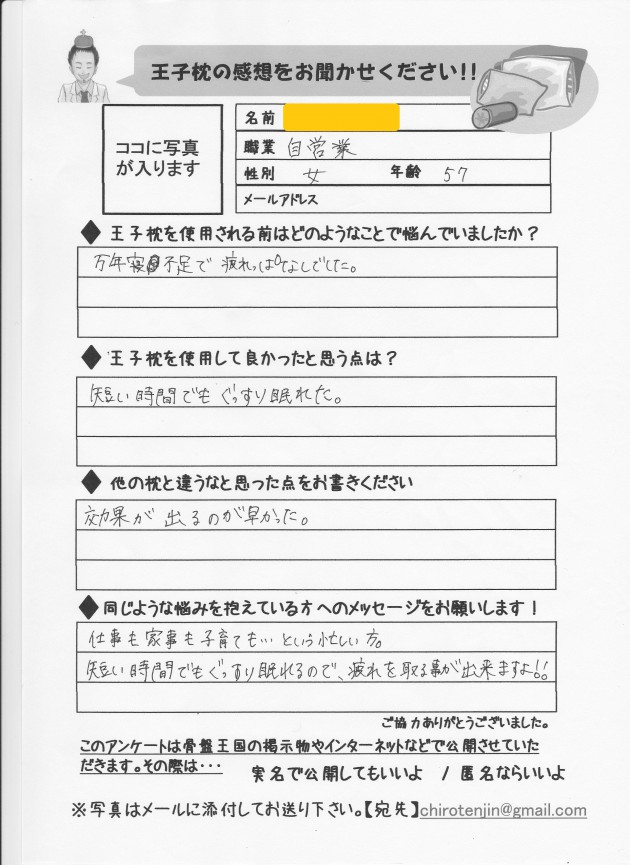 王子枕の感想をお聞かせください!!
ココに写真
が入ります
名前
職業 自営業
性別 女 年齢 57
メールアドレス
◆王子枕を使用される前はどのようなことで悩んでいましたか？
万年寝不足で 疲れっぱなしでした。
◆王子枕を使用して良かったと思う点は？
短い時間でも ぐっすり眠れた。
◆他の枕と違うなと思った点をお書きください
効果が 出るのが早かった。
◆同じような悩みを抱えている方へのメッセージをお願いします！
仕事も家事も子育ても…という忙しい方。
短い時間でもぐっすり眠れるので、疲れを取る事が出来ますよ!!
ご協力ありがとうございました。
このアンケートは骨盤王国の掲示物やインターネットなどで公開させていた
だきます。その際は・・・ 実名で公開してもいいよ / 匿名ならいいよ
※写真はメールに添付してお送り下さい。【宛先】chirotenjin@gmail.com